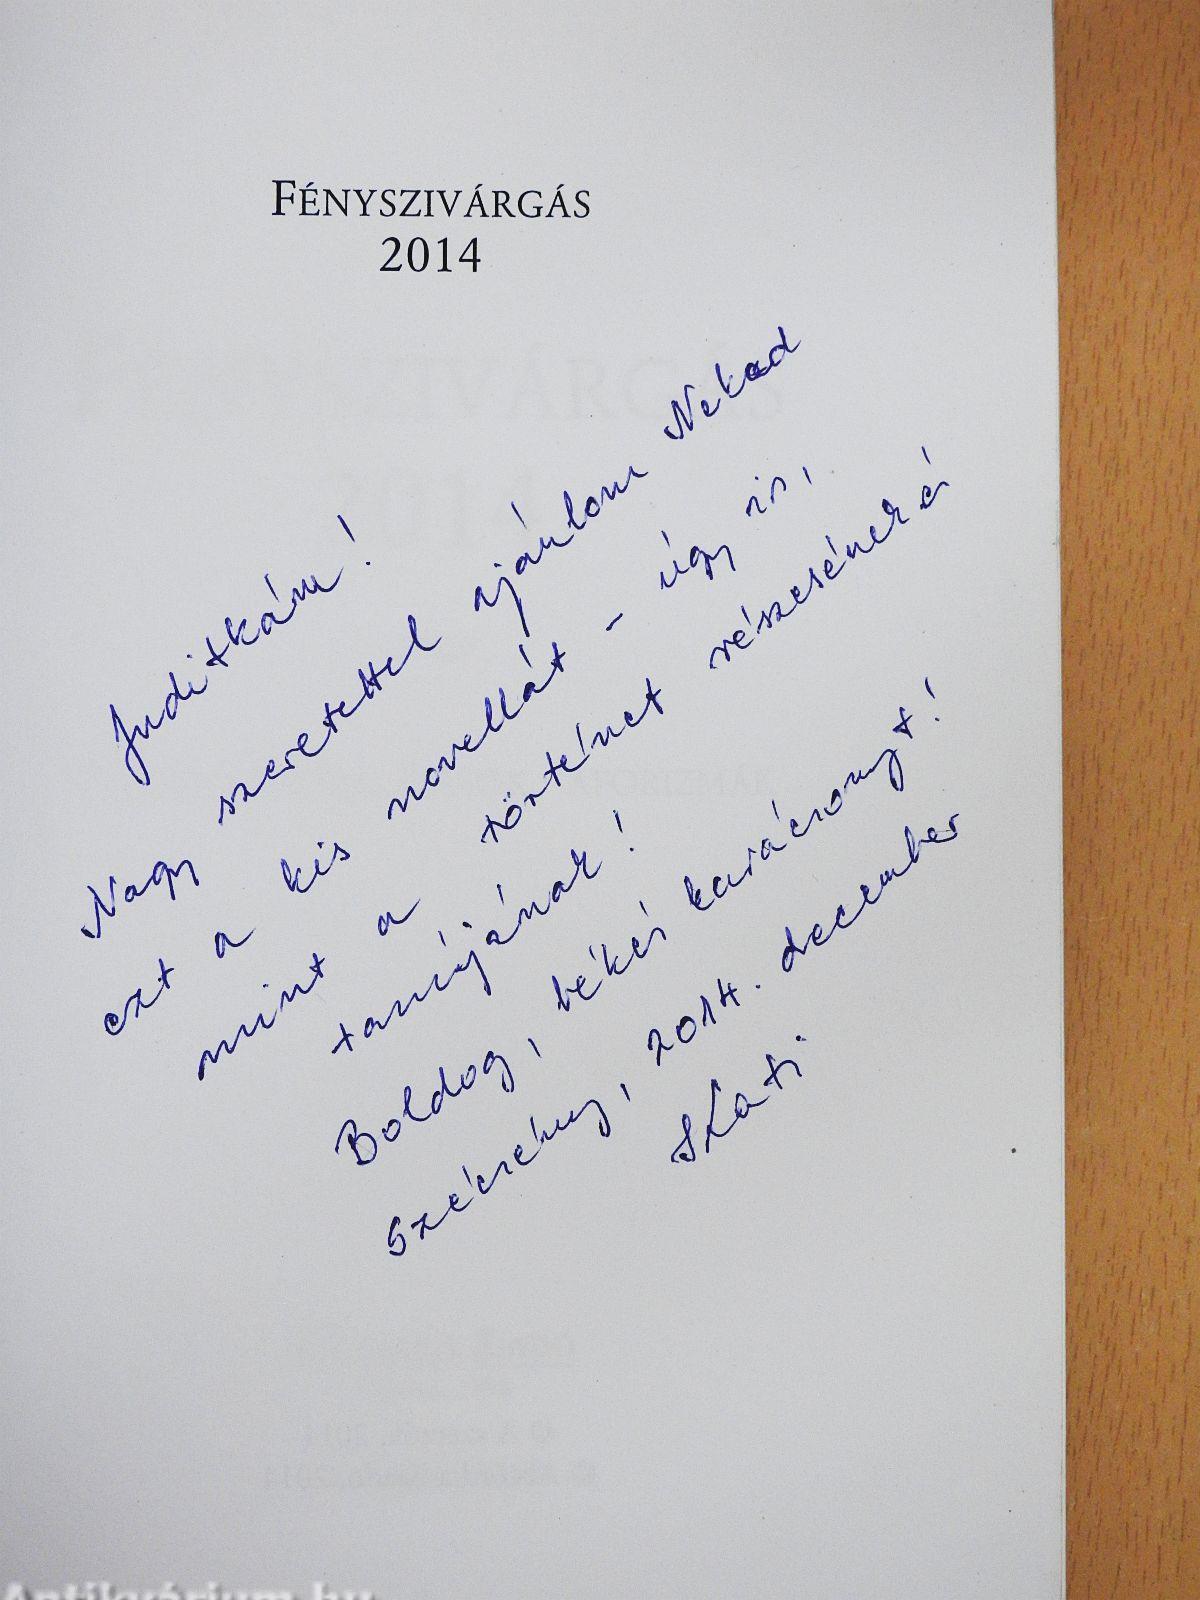 FÉNYSZIVÁRGÁS
2014
Juditkám!
Nagy szeretettel ajánlom Neked
ezt a kis novellát - úgy is,
mint a történet részesének és
tanújának!
Boldog, békés karácsonyt!
Szécsény, 2014. december
Kati
Antikvárium.hu